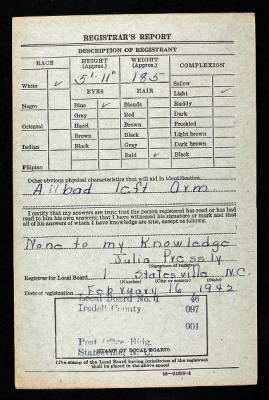 REGISTRAR'S REPORT
DESCRIPTION OF REGISTRANT
RACE HEIGHT (Approx.) WEIGHT (Approx.) COMPLEXION
White ✓ 5' 11" 185 Sallow
EYES HAIR Light ✓
Negro Blue ✓ Blonde Ruddy
Gray Red Dark
Oriental Hazel Brown Freckled
Brown Black Light brown
Indian Black Gray Dark brown
Bald ✓ Black
Filipino
Other obvious physical characteristics that will aid in identification
left arm
I certify that my answers are true; that the person registered has read or has had read to him his own answers; that I have witnessed his signature or mark and that all of his answers of which I have knowledge are true, except as follows:
None to my knowledge
Julia Pressly
(Signature of registrar)
Registrar for Local Board 1 Statesville N.C.
(Number) (City or county) (State)
Date of registration February 16 1942
Local Board No. 46
Iredell County 097
901
Post Office Bldg.
Statesville, N. C.
(STAMP OF LOCAL BOARD)
(The stamp of the Local Board having jurisdiction of the registrant shall be placed in the above space)